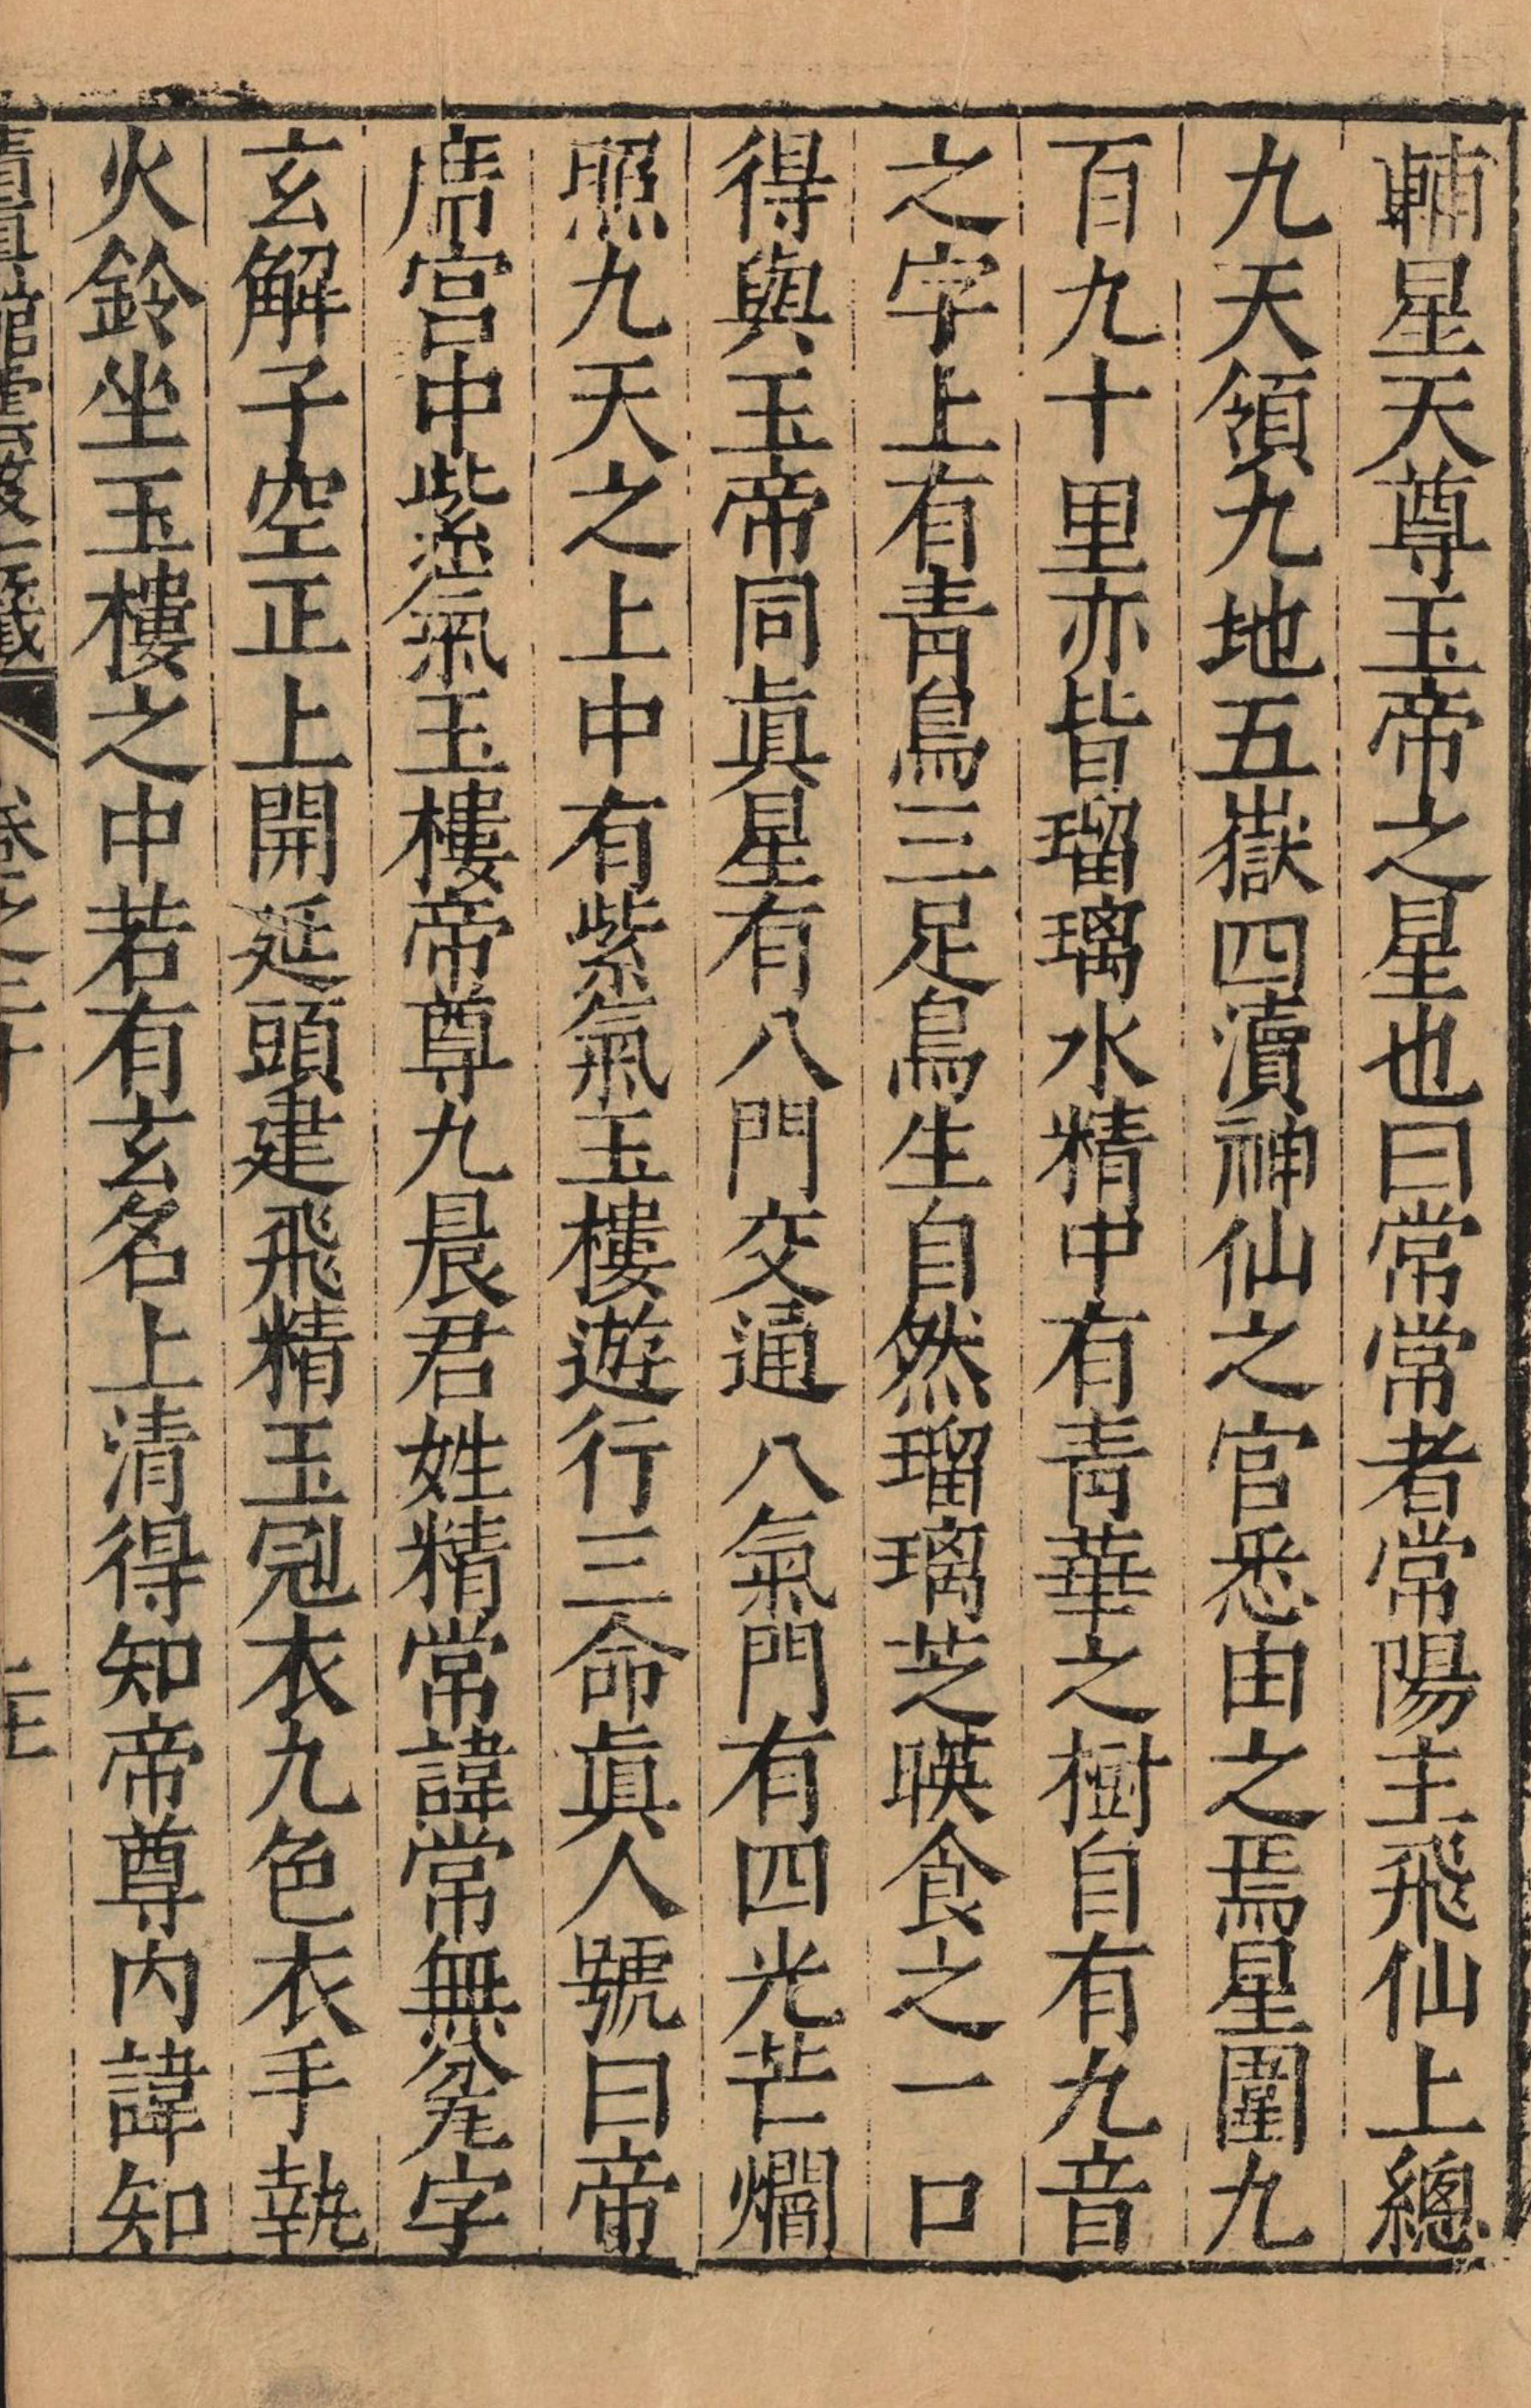 輔星天尊玉帝之星也曰常常者常陽主飛仙上總
九天領九地五嶽四瀆神仙之官悉由之焉星圍九
百九十里亦皆瑠璃水精中有青華之樹自有九音
之字上有青鳥三足鳥生自然瑠璃芝暎食之一口
得與玉帝同眞星有八門交通八氣門有四光芒爓
照九天之上中有紫氣玉樓遊行三命眞人號曰帝
席宮中紫氣玉樓帝尊九晨君姓精常諱常無字
玄解子空正上開延頭建飛精玉冠衣九色衣手執
火鈴坐玉樓之中若有玄名上清得知帝尊內諱知
清眞館雲笈七籤 卷之二十